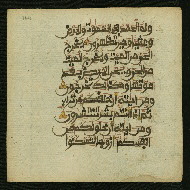 وله الحمد في السموت والارض
وعشيا وحين تظهرون يخرج
الحي من الميت ويخرج الميت
من الحي ويحي الارض بعد
موتها وكذلك تخرجون
ومن ايته ان خلقكم من تراب
ثم اذا انتم بشر تنتشرون
ومن ايته ان خلق لكم من
انفسكم ازوجا لتسكنوا